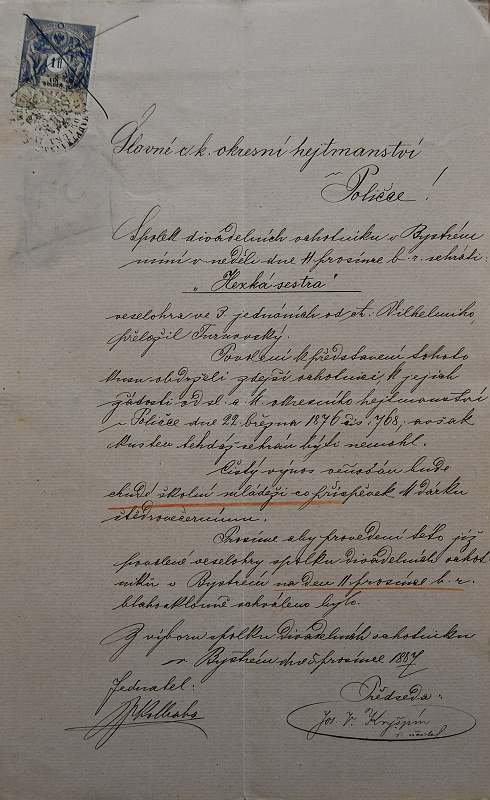 Slavné c.k. okresní hejtmanství
v Poličce!
Spolek divadelních ochotníků v Bystrém
míní v neděli dne 11 prosince b. r. sehráti:
„Hezká sestra“
veselohra ve 3 jednáních od A. Wilhelmiho,
přeložil Turnovský.
Povolení k představení tohoto
kusu obdrželi zdejší ochotníci, k jejich
žádosti od sl. c. k. okresního hejtmanství
v Poličce dne 22 března 1876 čís. 768, avšak
kus ten tehdáž sehrán býti nemohl.
Čistý výnos věnován bude
chudé školní mládeži co příspěvek k dárku
štědrovečernímu.
Prosíme aby provedení této již
povolené veselohry spolku divadelních ochot-
níků v Bystrém na den 11. prosince b. r.
blahosklonně schváleno bylo.
Z výboru spolku divadelních ochotníků
v Bystrém dne 5 prosince 1887
Jednatel: Předseda:
Jos. V. Kryšpín